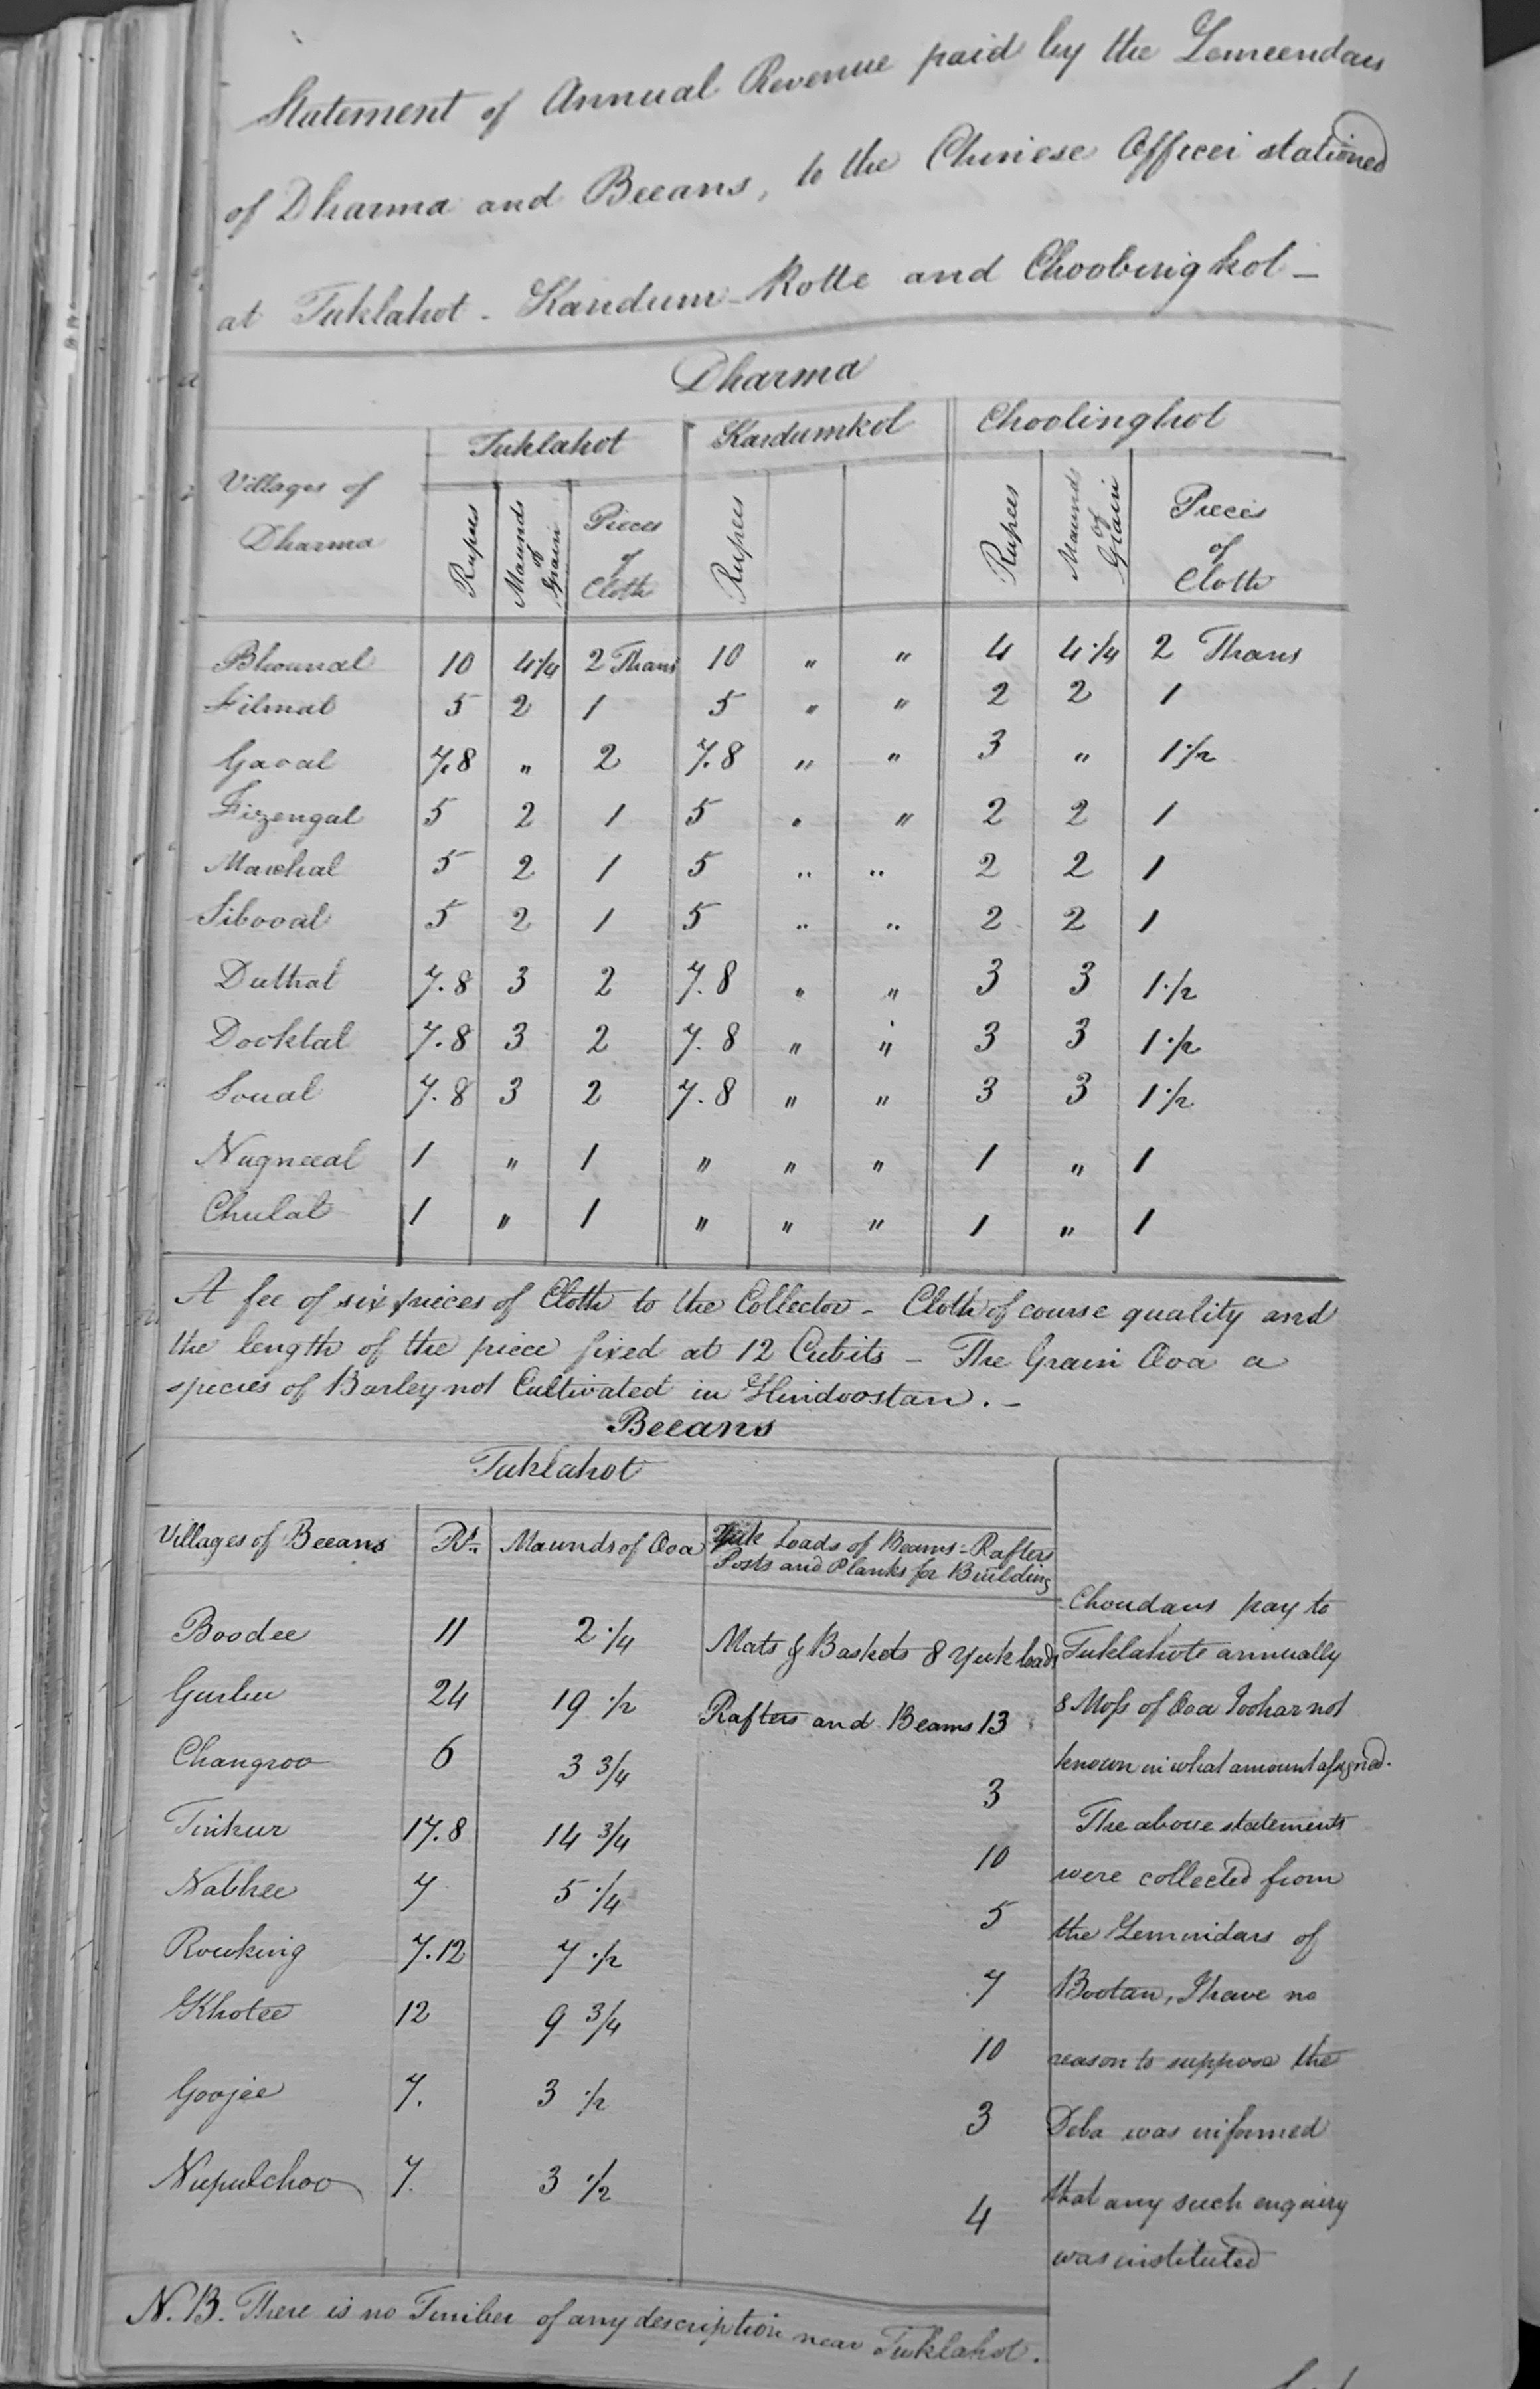 Statement of Annual Revenue paid by the Zemeendars
of Dharma and Beeans, to the Chinese Officer stationed
at Tuklakot - Kandum-Kotte and Choobingkot -
Dharma
Villages of Dharma Tuklakot Kardumkot Choolingkot
Rupees Maunds of Grain Pieces of Cloth Rupees Rupees Maunds of Grain Pieces of Cloth
Bhounal 10 4 1/4 2 Thans 10 " " 4 4 1/4 2 Thans
Filmal 5 2 1 5 " " 2 2 1
Gaoal 7.8 " 2 7.8 " " 3 " 1 1/2
Fizengal 5 2 1 5 " " 2 2 1
Marchal 5 2 1 5 " " 2 2 1
Sibooal 5 2 1 5 " " 2 2 1
Duthal 7.8 3 2 7.8 " " 3 3 1 1/2
Dooktal 7.8 3 2 7.8 " " 3 3 1 1/2
Soual 7.8 3 2 7.8 " " 3 3 1 1/2
Nugneeal 1 " 1 " " " 1 " 1
Chulal 1 " 1 " " " 1 " 1
A fee of six pieces of Cloth to the Collector - Cloth of course quality and
the length of the piece fixed at 12 Cubits - The Grain Ooa a
species of Barley not Cultivated in Hindoostan. -
Beeans
Tuklakot
Villages of Beeans Rs. Maunds of Ooa Yuk Loads of Beams - Rafters
Posts and Planks for Building
Boodee 11 2 1/4 Mats & Baskets 8 Yuk loads
Gurbu 24 19 1/2 Rafters and Beams 13
Changroo 6 3 3/4 3
Tinkur 17.8 14 3/4 10
Nabhee 7 5 1/4 5
Rowking 7.12 7 1/2 7
Khotee 12 9 3/4 10
Goojee 7. 3 1/2 3
Nupulchoo 7. 3 1/2 4
Choudans pay to
Tuklakote annually
8 Mds of Ooa Joohar not
known in what amount assigned.
The above statements
were collected from
the Zemindars of
Bootan, I have no
reason to suppose the
Deba was informed
that any such enquiry
was instituted
N.B. There is no Timber of any description near Tuklakot.